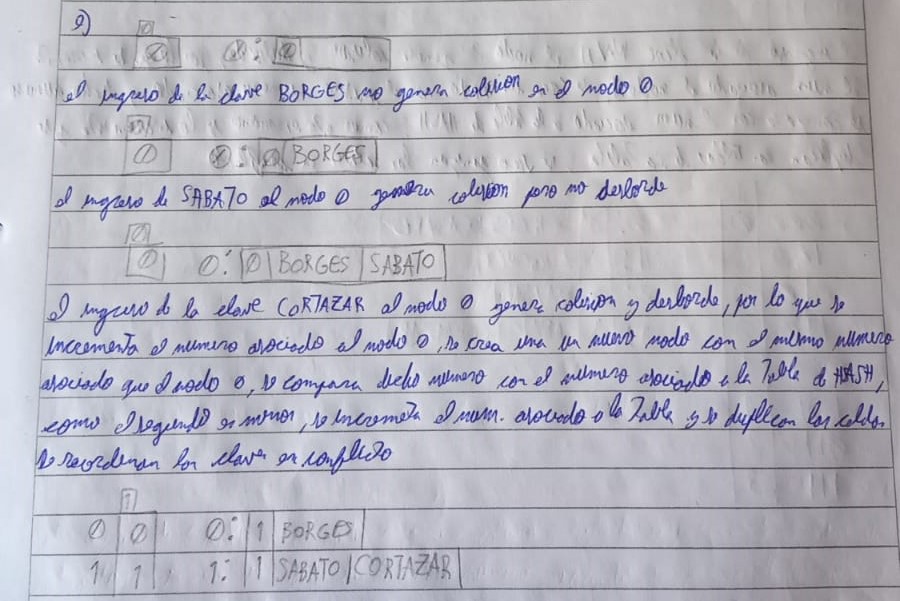 e)
0
0 0: 0
el ingreso de la clave BORGES no genera colision en el nodo 0
0
0 0: 0 BORGES
el ingreso de SABATO al nodo 0 genera colision pero no desborde
0
0 0: 0 BORGES SABATO
el ingreso de la clave CORTAZAR al nodo 0 genera colision y desborde, por lo que se
incrementa el numero asociado al nodo 0, se crea una un nuevo nodo con el mismo numero
asociado que el nodo 0, se compara dicho numero con el numero asociado a la Tabla de HASH,
como el segundo es menor, se incrementa el num. asociado a la Tabla y se duplican las celdas
se reordenan las clave en conflicto
1
0 0 0: 1 BORGES
1 1 1: 1 SABATO CORTAZAR